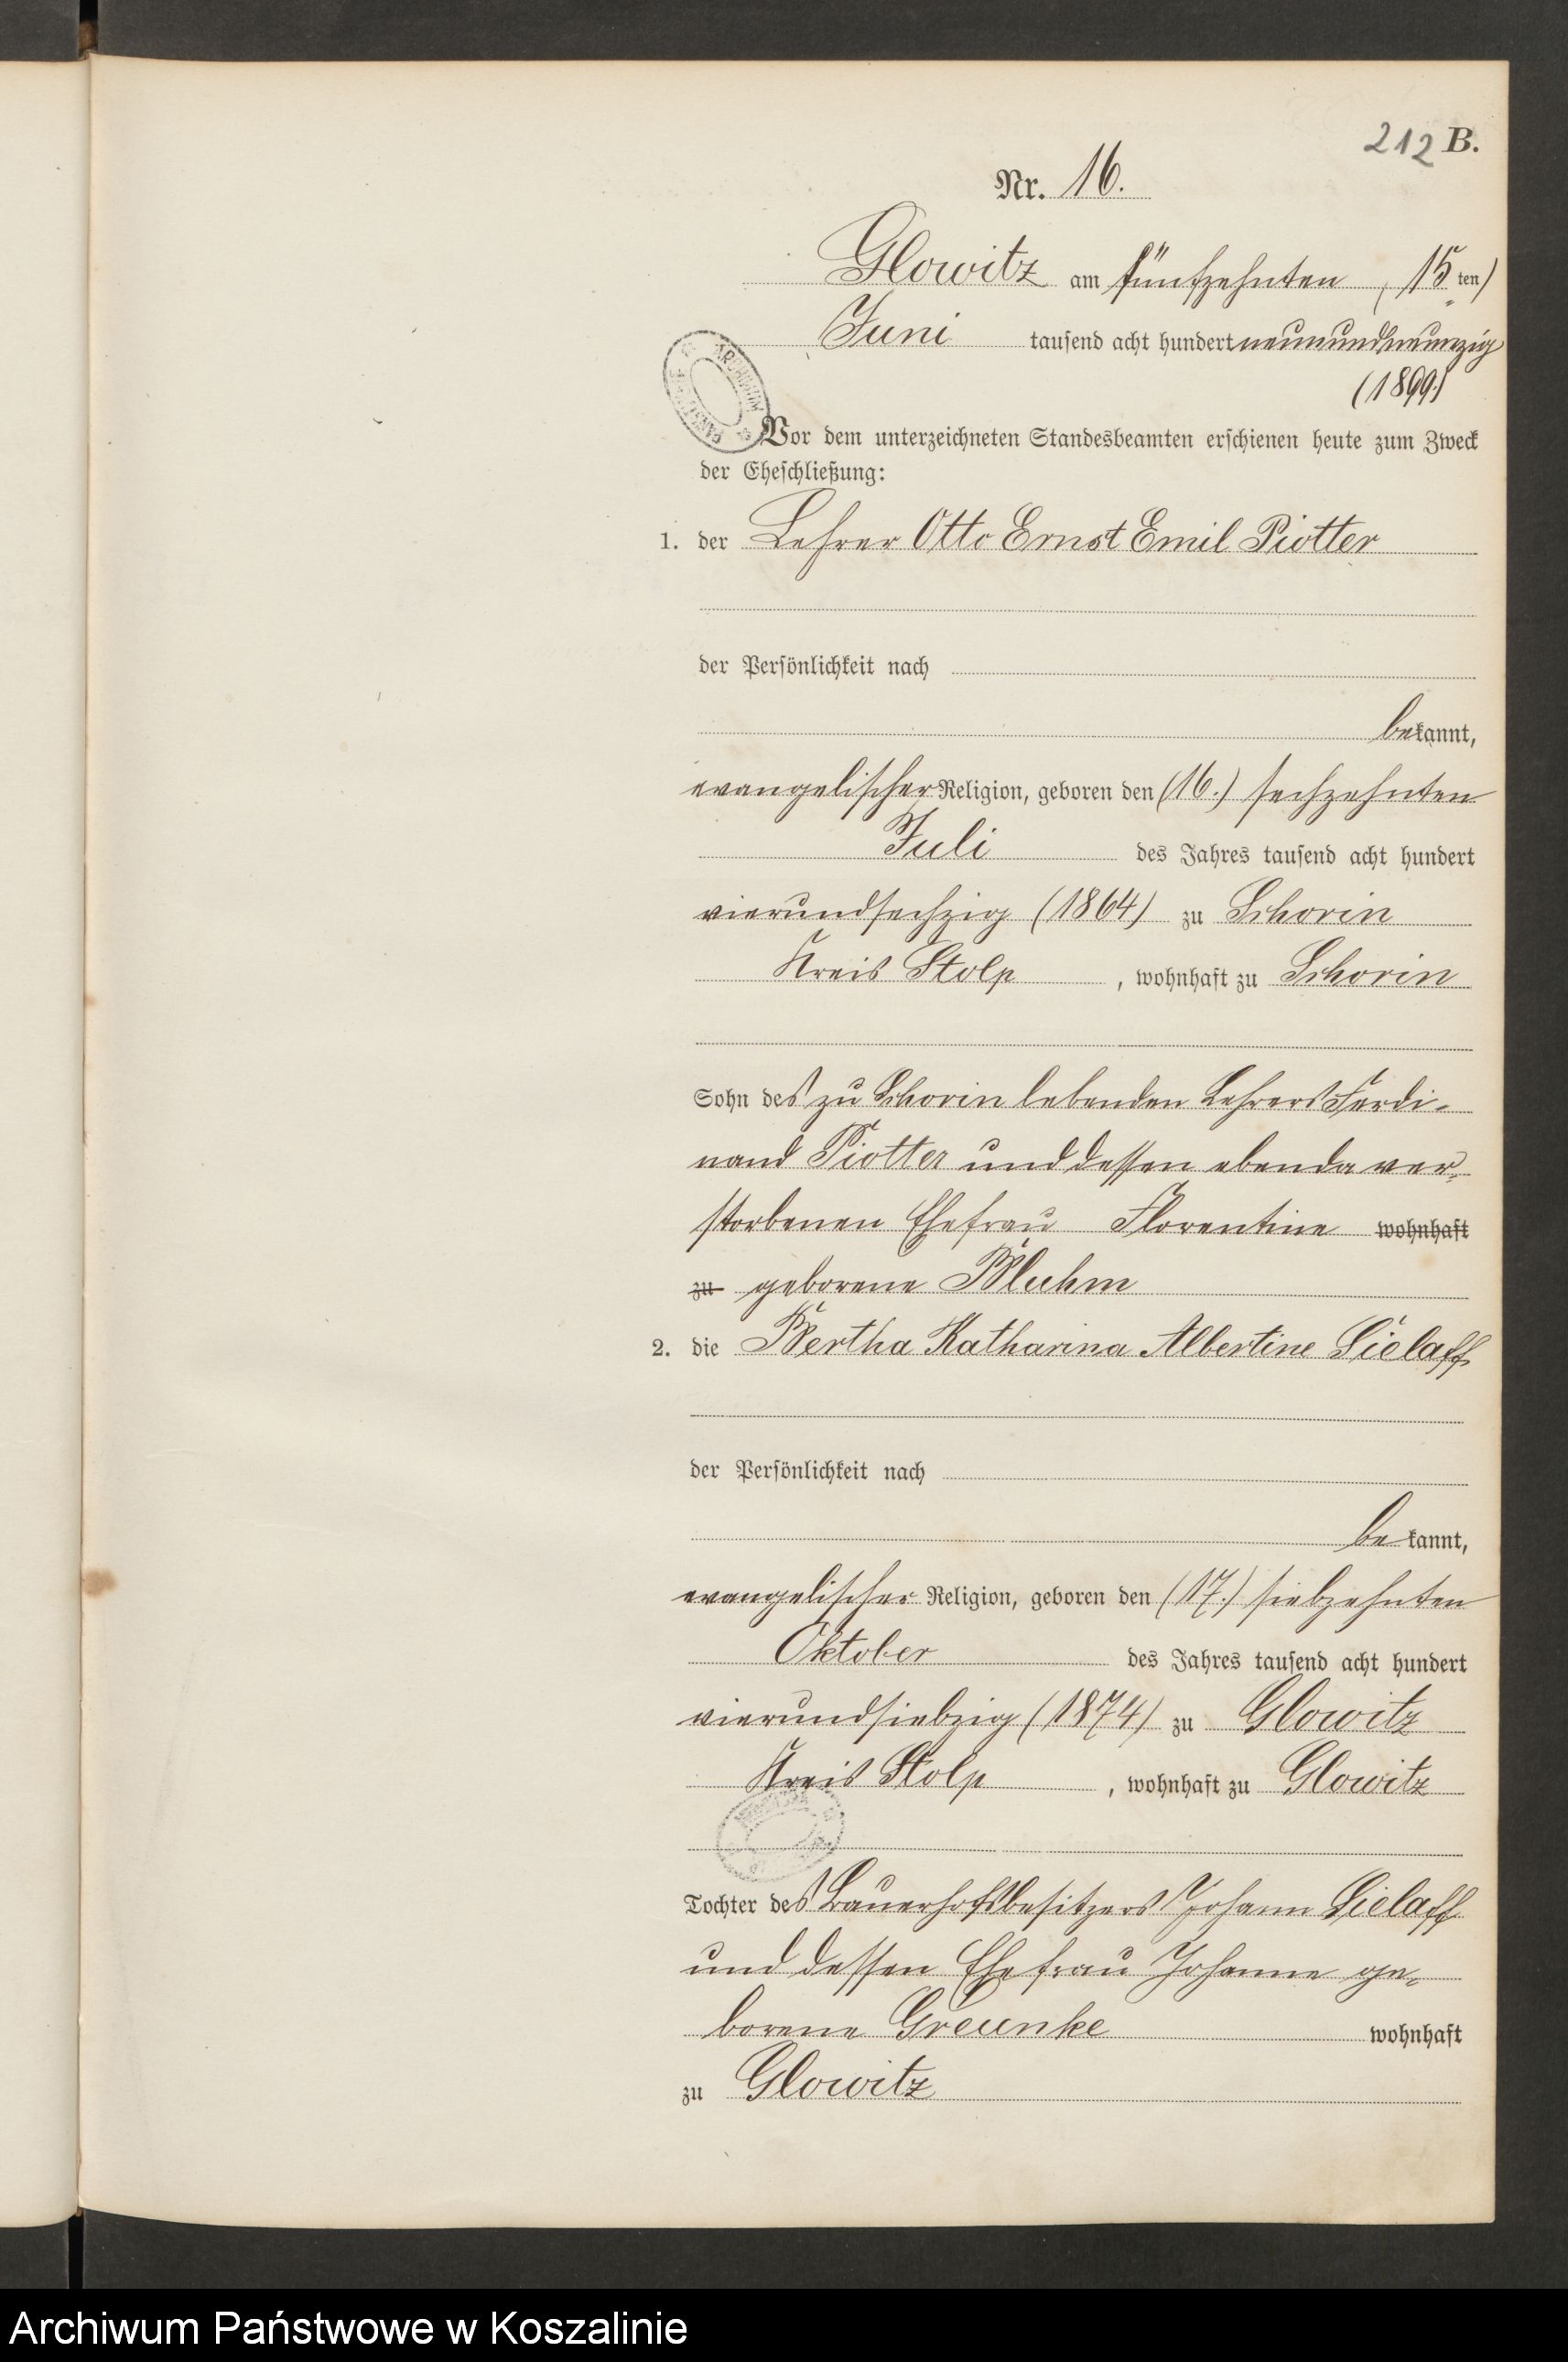 212 B.
Nr. 16.
Glowitz am fünfzehnten (15ten)
Juni tausend acht hundert neunundneunzig
(1899.)
Vor dem unterzeichneten Standesbeamten erschienen heute zum Zweck
der Eheschließung:
1. der Lehrer Otto Ernst Emil Piotter
der Persönlichkeit nach
bekannt,
evangelischer Religion, geboren den (16.) sechzehnten
Juli des Jahres tausend acht hundert
vierundsechzig (1864) zu Schorin
Kreis Stolp, wohnhaft zu Schorin
Sohn des zu Schorin lebenden Lehrers Ferdi-
nand Piotter und dessen ebenda ver-
storbenen Ehefrau Florentine wohnhaft
zu geborene Bluhm
2. die Bertha Katharina Albertine Sielaff
der Persönlichkeit nach
bekannt,
evangelischer Religion, geboren den (17.) siebzehnten
Oktober des Jahres tausend acht hundert
vierundsiebzig (1874) zu Glowitz
Kreis Stolp, wohnhaft zu Glowitz
Tochter des Bauerhofsbesitzers Johann Sielaff
und dessen Ehefrau Johanne ge-
borene Greunke wohnhaft
zu Glowitz
Archiwum Państwowe w Koszalinie